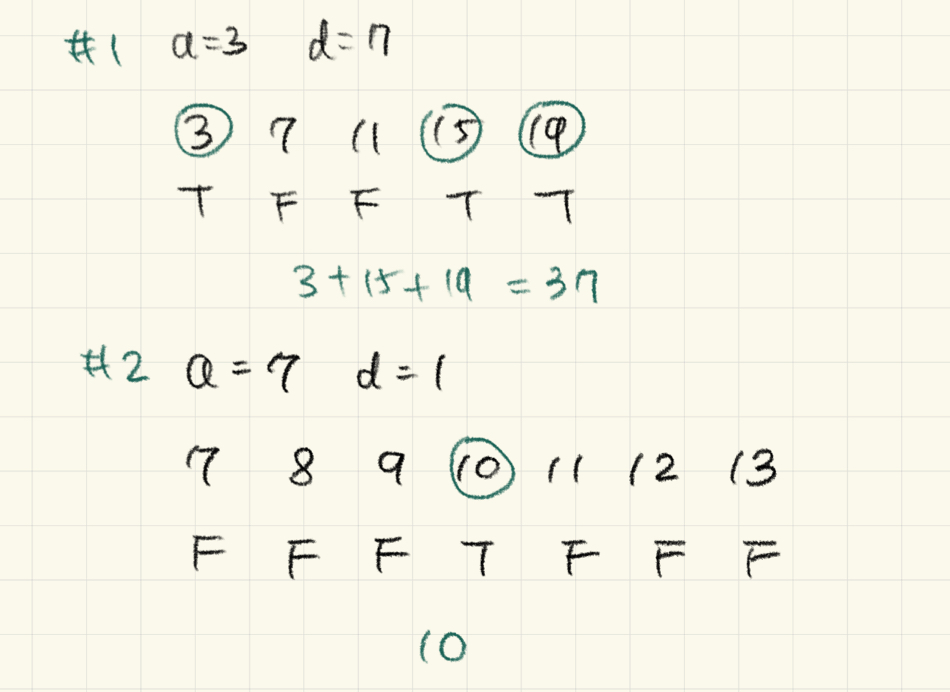 #1 a=3 d=7
3 7 11 15 19
T F F T T
3+15+19 = 37
#2 a=7 d=1
7 8 9 10 11 12 13
F F F T F F F
10